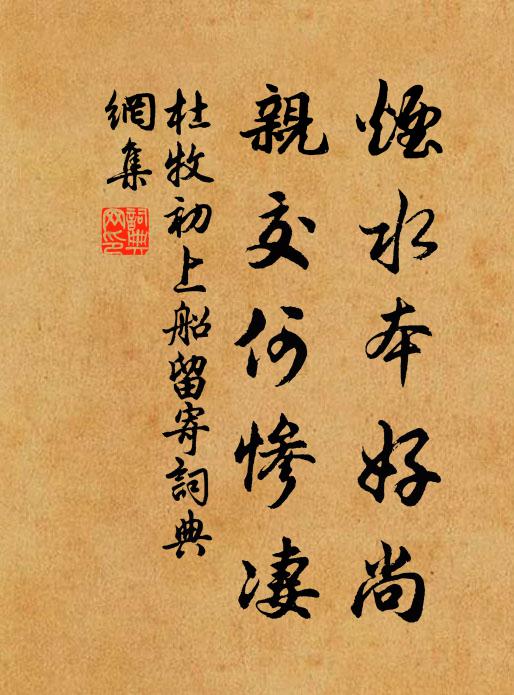 煙水本好尚
親交何慘淒
杜牧初上船留寄詞典
網集
詞典
网印